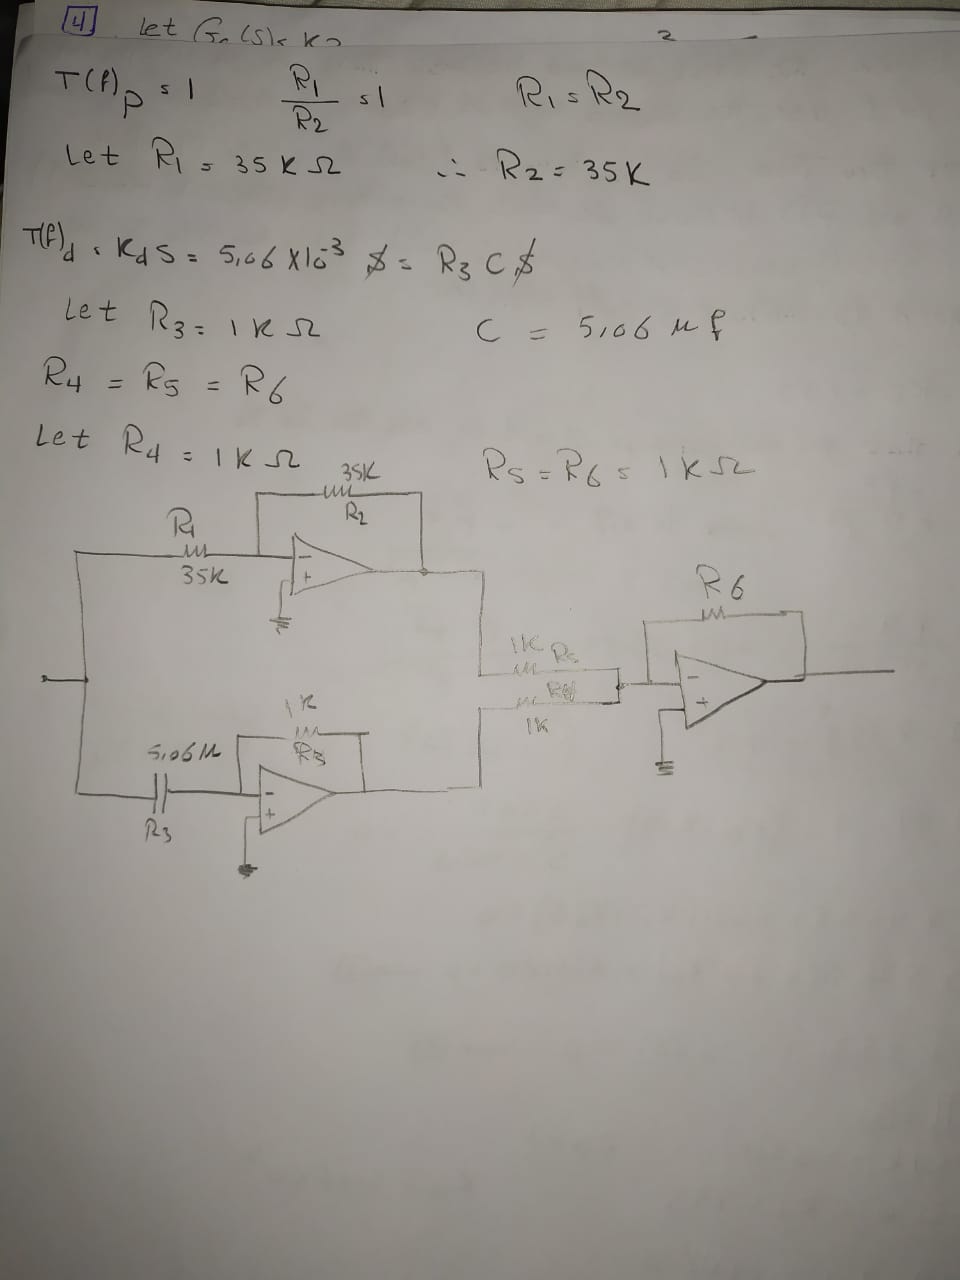 4 Let
2
T(f)p = 1 R1/R2 = 1 R1 = R2
Let R1 = 35 K Ω ∴ R2 = 35K
T(f)d = Kd S = 5,06 X10^-3 $ = R3 C $
Let R3 = 1 K Ω C = 5,06 μ f
R4 = R5 = R6
Let R4 = 1 K Ω R5 = R6 = 1 K Ω
35K
R2
R1
35K
-
+
R6
1K R5
R4
1K
-
+
1K
R3
5,06 M
R3
-
+